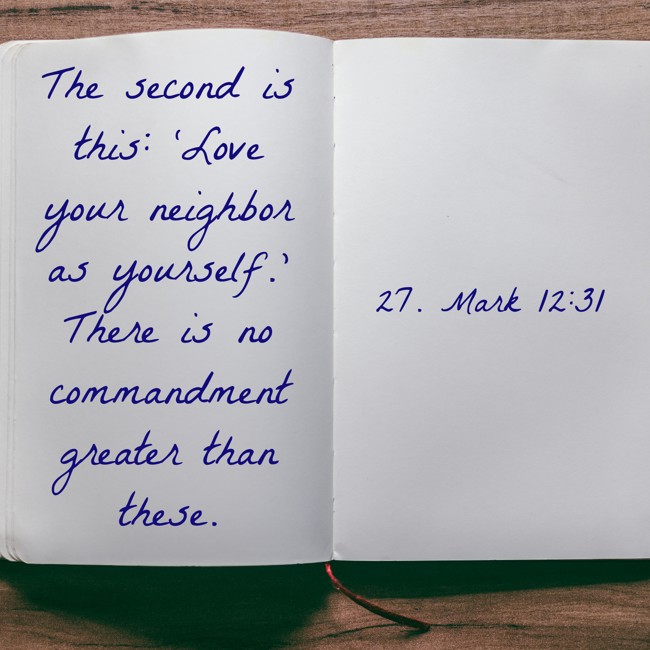 The second is
this: 'Love
your neighbor
as yourself.'
There is no
commandment
greater than
these.
27. Mark 12:31